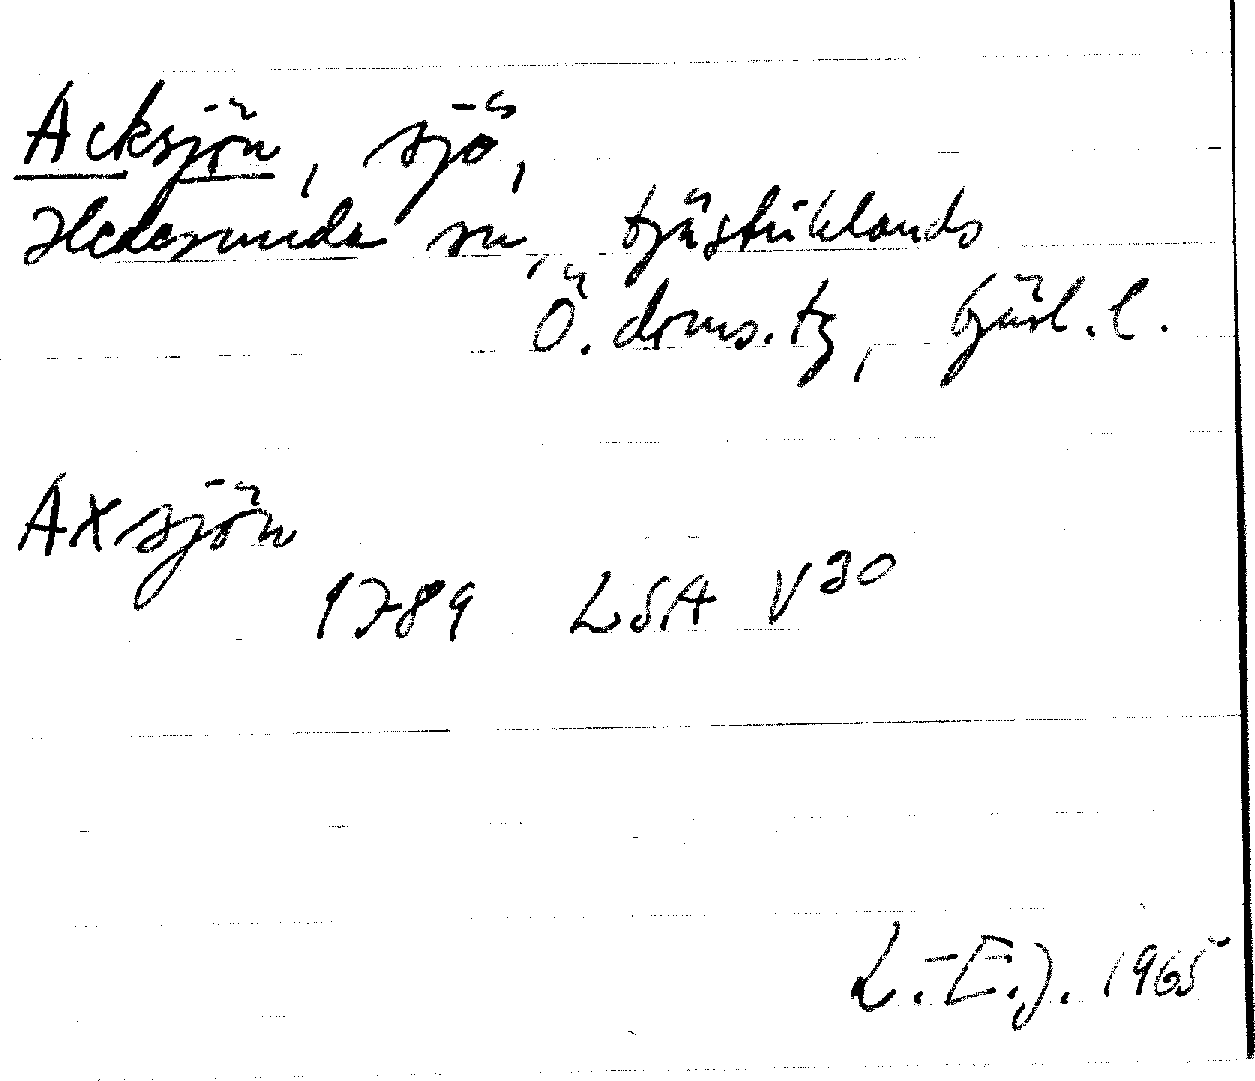 Acksjön, sjö,
Hedesunda sn, Gästriklands
Ö. doms.tg, Gävl. l.
Axsjön
1789 LSA V30
L.-E.J. 1965